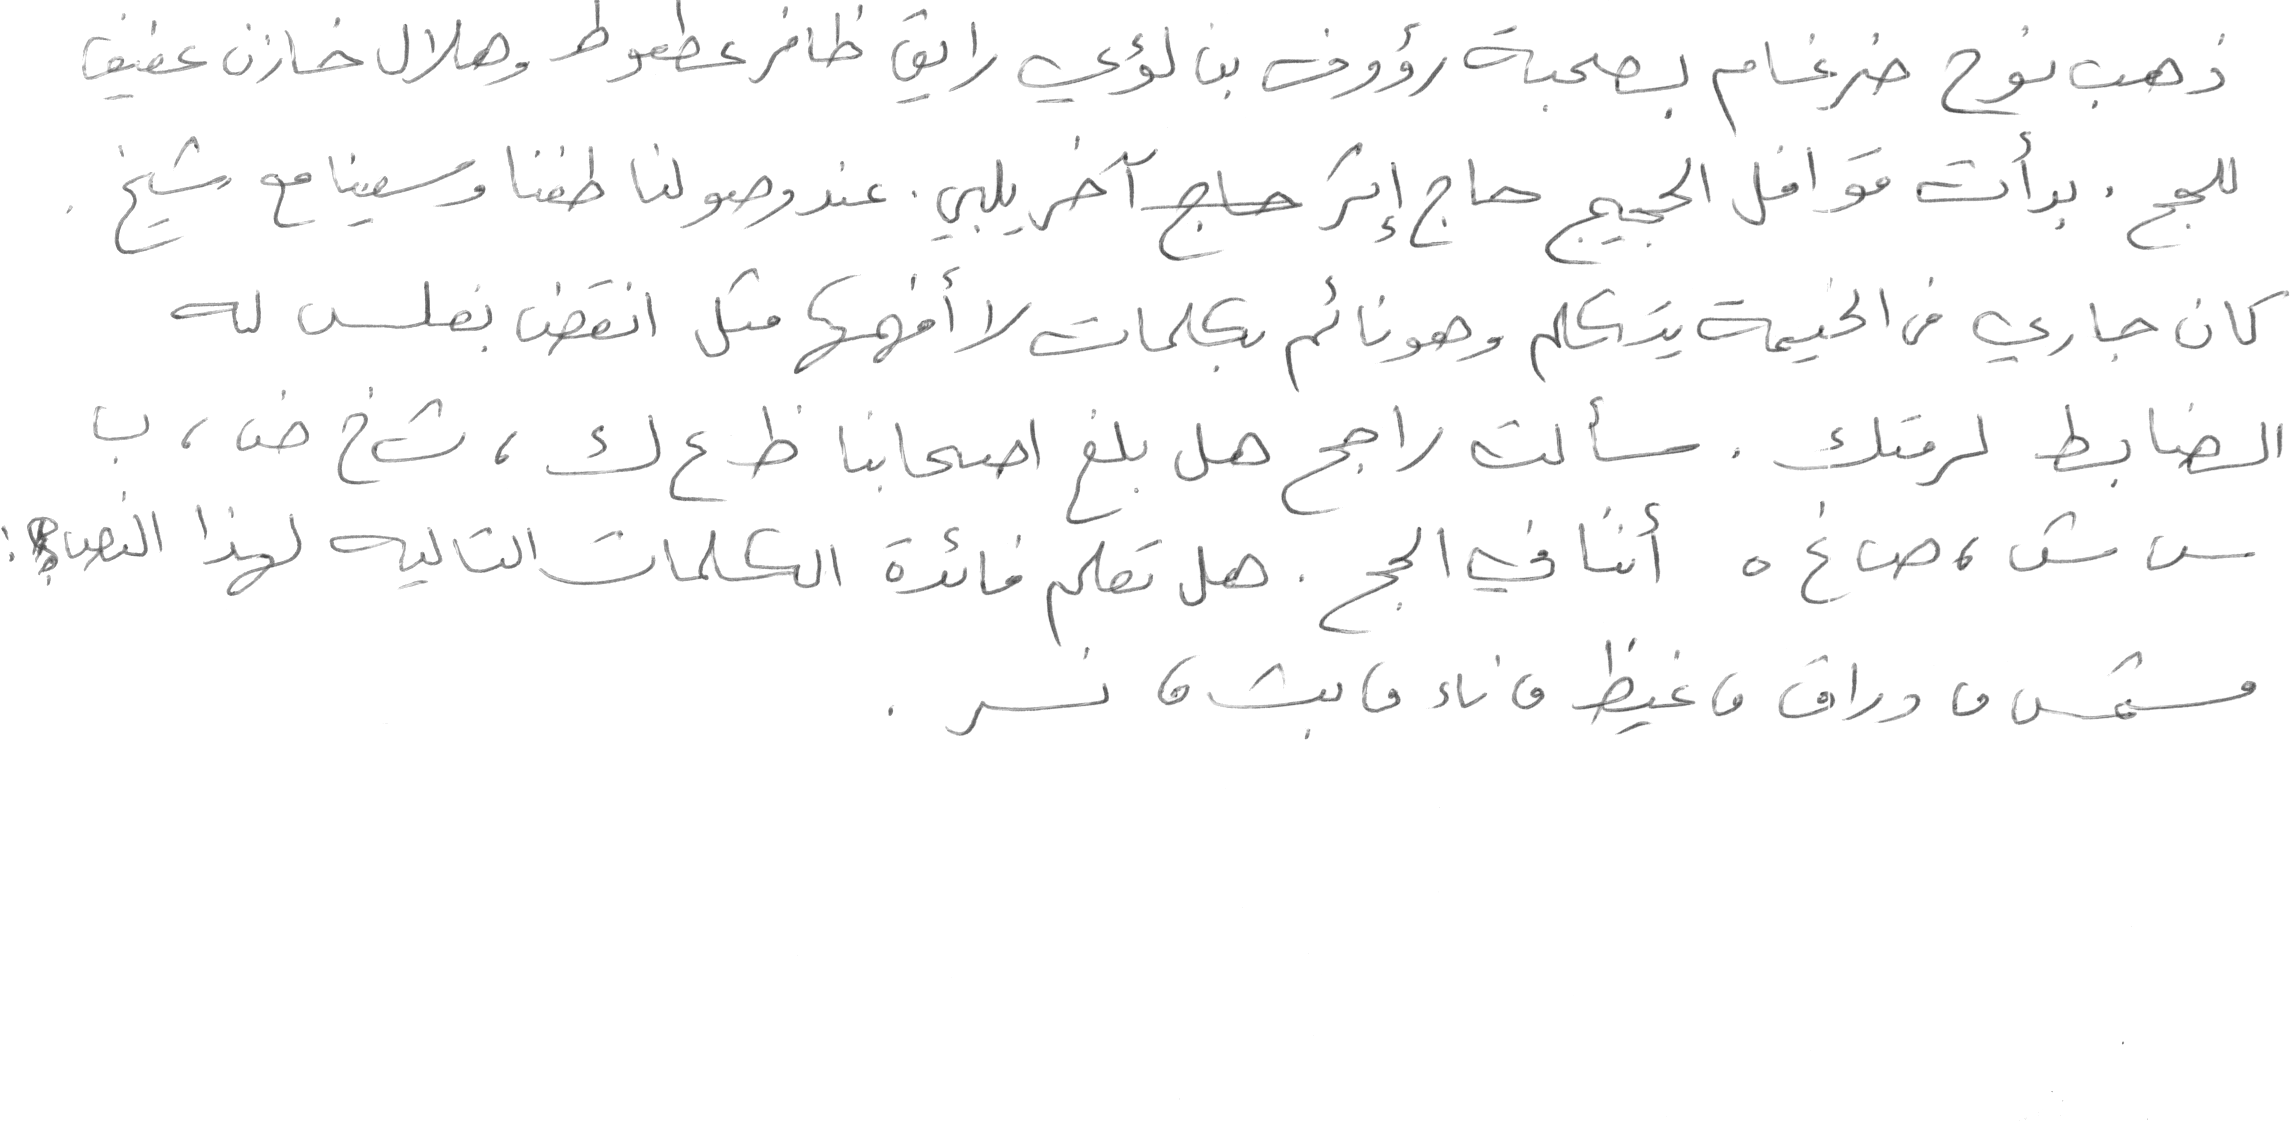 ذهب نوح ضرغام بصحبة رؤوف بن لؤي رايق ظافر عطعوط وهلال خازن عفيف
للحج . بدأت قوافل الحجيج حاج إثر حاج آخر يلبي . عند وصولنا طفنا وسعينا مع شيخ .
كان جاري في الخيمة يتكلم وهو نائم بكلمات لا أفهمها مثل انقض بفلس له
الضابط لرمتك . سألت راجح هل بلغ اصحابنا ظ ع ك ، ث خ ض ، ب
س ش ، ص غ ه أننا في الحج . هل تعلم فائدة الكلمات التاليه لهذا النص :
مشمس ، وراق ، غيظ ، ناء ، بث ، نسر .